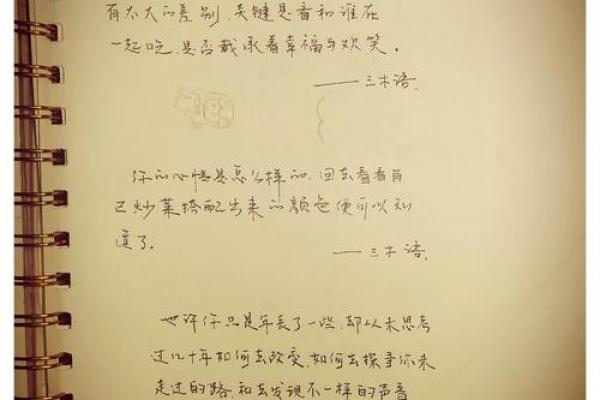 有太大的差别，关键是看和谁在
一起吃，是否载承着幸福与欢笑。
——三木语.
你的心情是怎么样的，回去看看自
己炒菜搭配出来的颜色便可以知
道了。
——三木语.
也许你只是年长了一些，却从未思考
过几十年如何去改变，如何去探寻你未
走过的路，和去发现不一样的声音